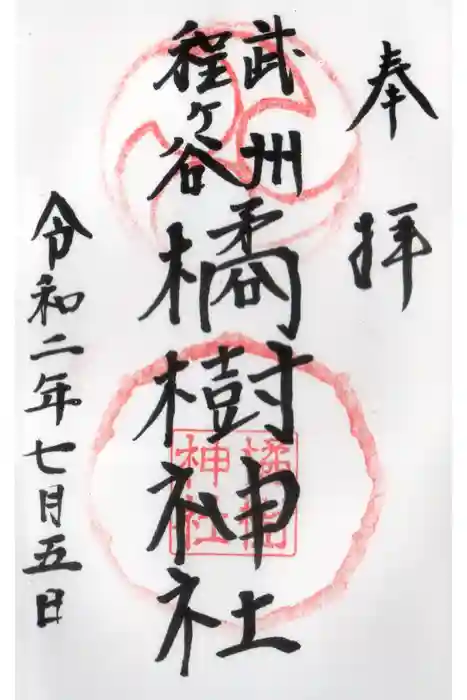 奉拝
武州
程ヶ谷
橘樹神社
令和二年七月五日
橘樹
神社